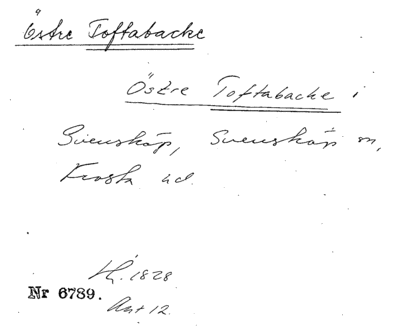 Östre Toftabacke
Östre Toftabacke i
Svensköp, Svensköp sn,
Frosta hd
1828
Nr 6789.
Akt 12.